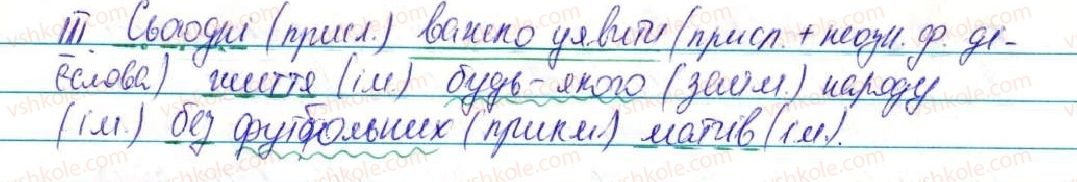 III. Сьогодні (присл.) важко уявити (присл. + неозн. ф. ді-
єслова) життя (ім.) будь-якого (займ.) народу
(ім.) без футбольних (прикм.) матчів (ім.).